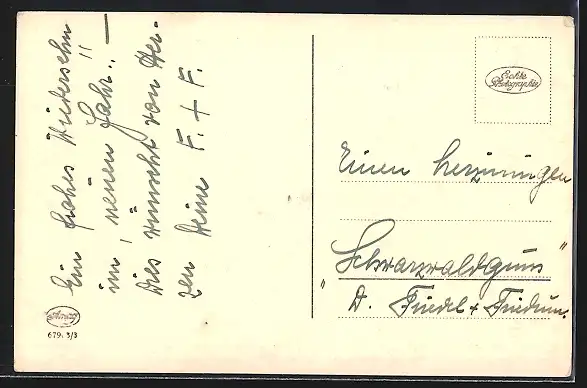 Ein frohes Wiedersehn
im „neuen Jahr"! —
Dies wünscht von Her-
zen Deine F. + F.
Echte
Photographie
Einen herzinnigen
„Schwarzwaldgruss"
D. Friedl + Friedrun.
679. 3/3